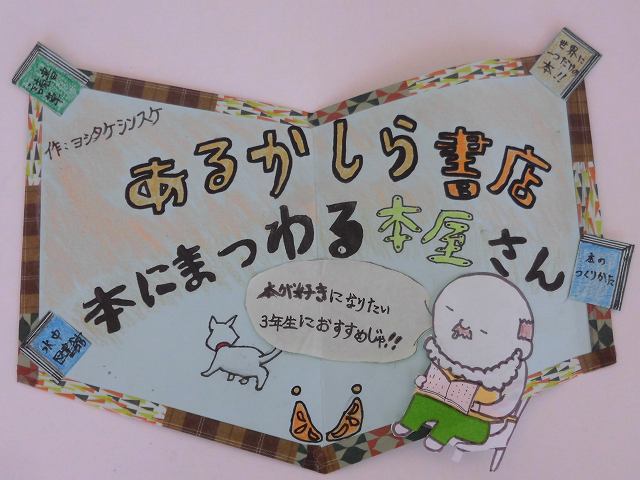 世界に
一つだけの
本!!
作:ヨシタケシンスケ
あるかしら書店
本にまつわる本屋さん
本の
つくりかた
本が好きになりたい
3年生におすすめじゃ!!
水中
図書館